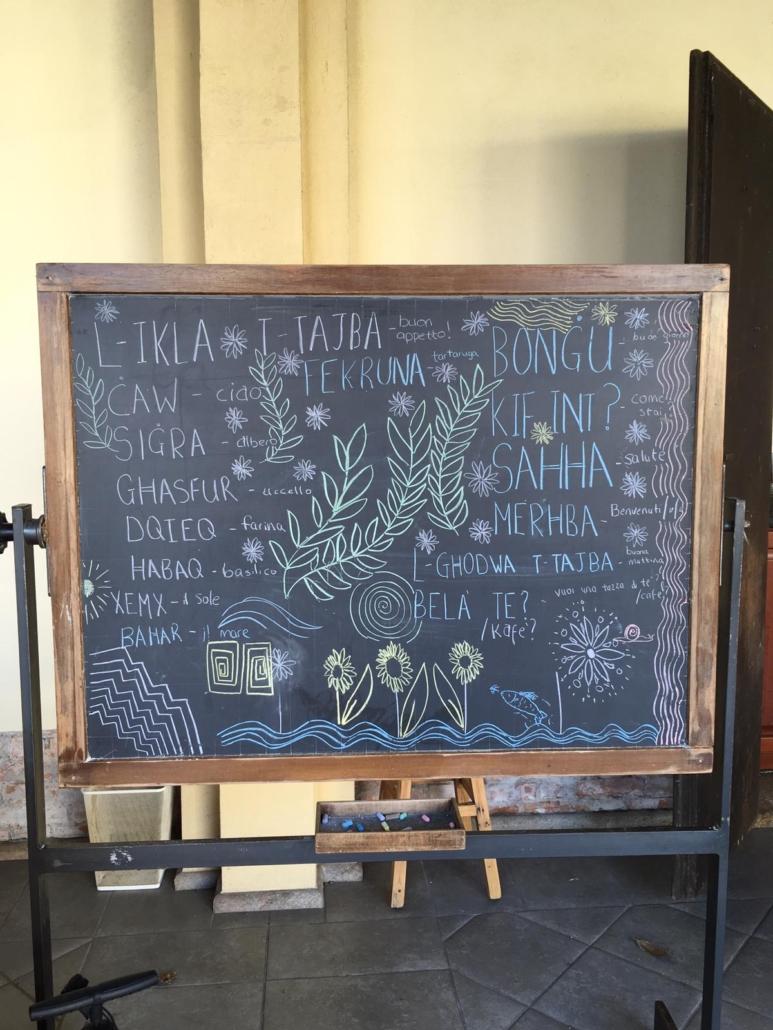 L-IKLA T-TAJBA - buon appetto!
FEKRUNA - tartaruga
ĊAW - ciao
SIĠRA - albero
GHASFUR - uccello
DQIEQ - farina
HABAQ - basilico
XEMX - il sole
BAHAR - il mare
BONĠU -
KIF INT? - come stai?
SAHHA - salute
MERHBA - Benvenuti
L-GHODWA T-TAJBA - buona mattina
BELA TE? /Kafe? - vuoi una tazza di te? /cafe